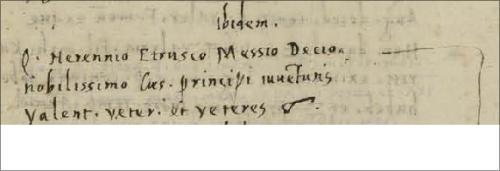 ibidem.
Q. Herennio Etrusco Messio Decio.
nobilissimo Caes. principi iuuetutis
Valent. veter. et veteres